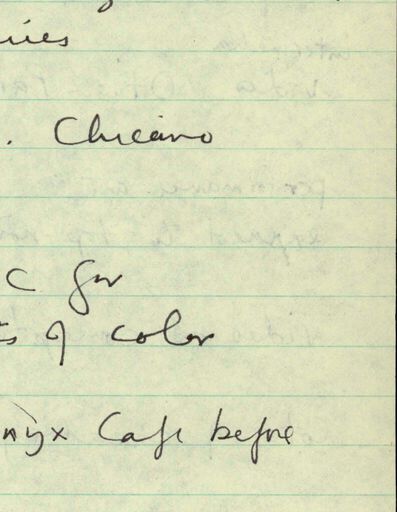 . Chicano
c for
ts of color
nyx Cafe before